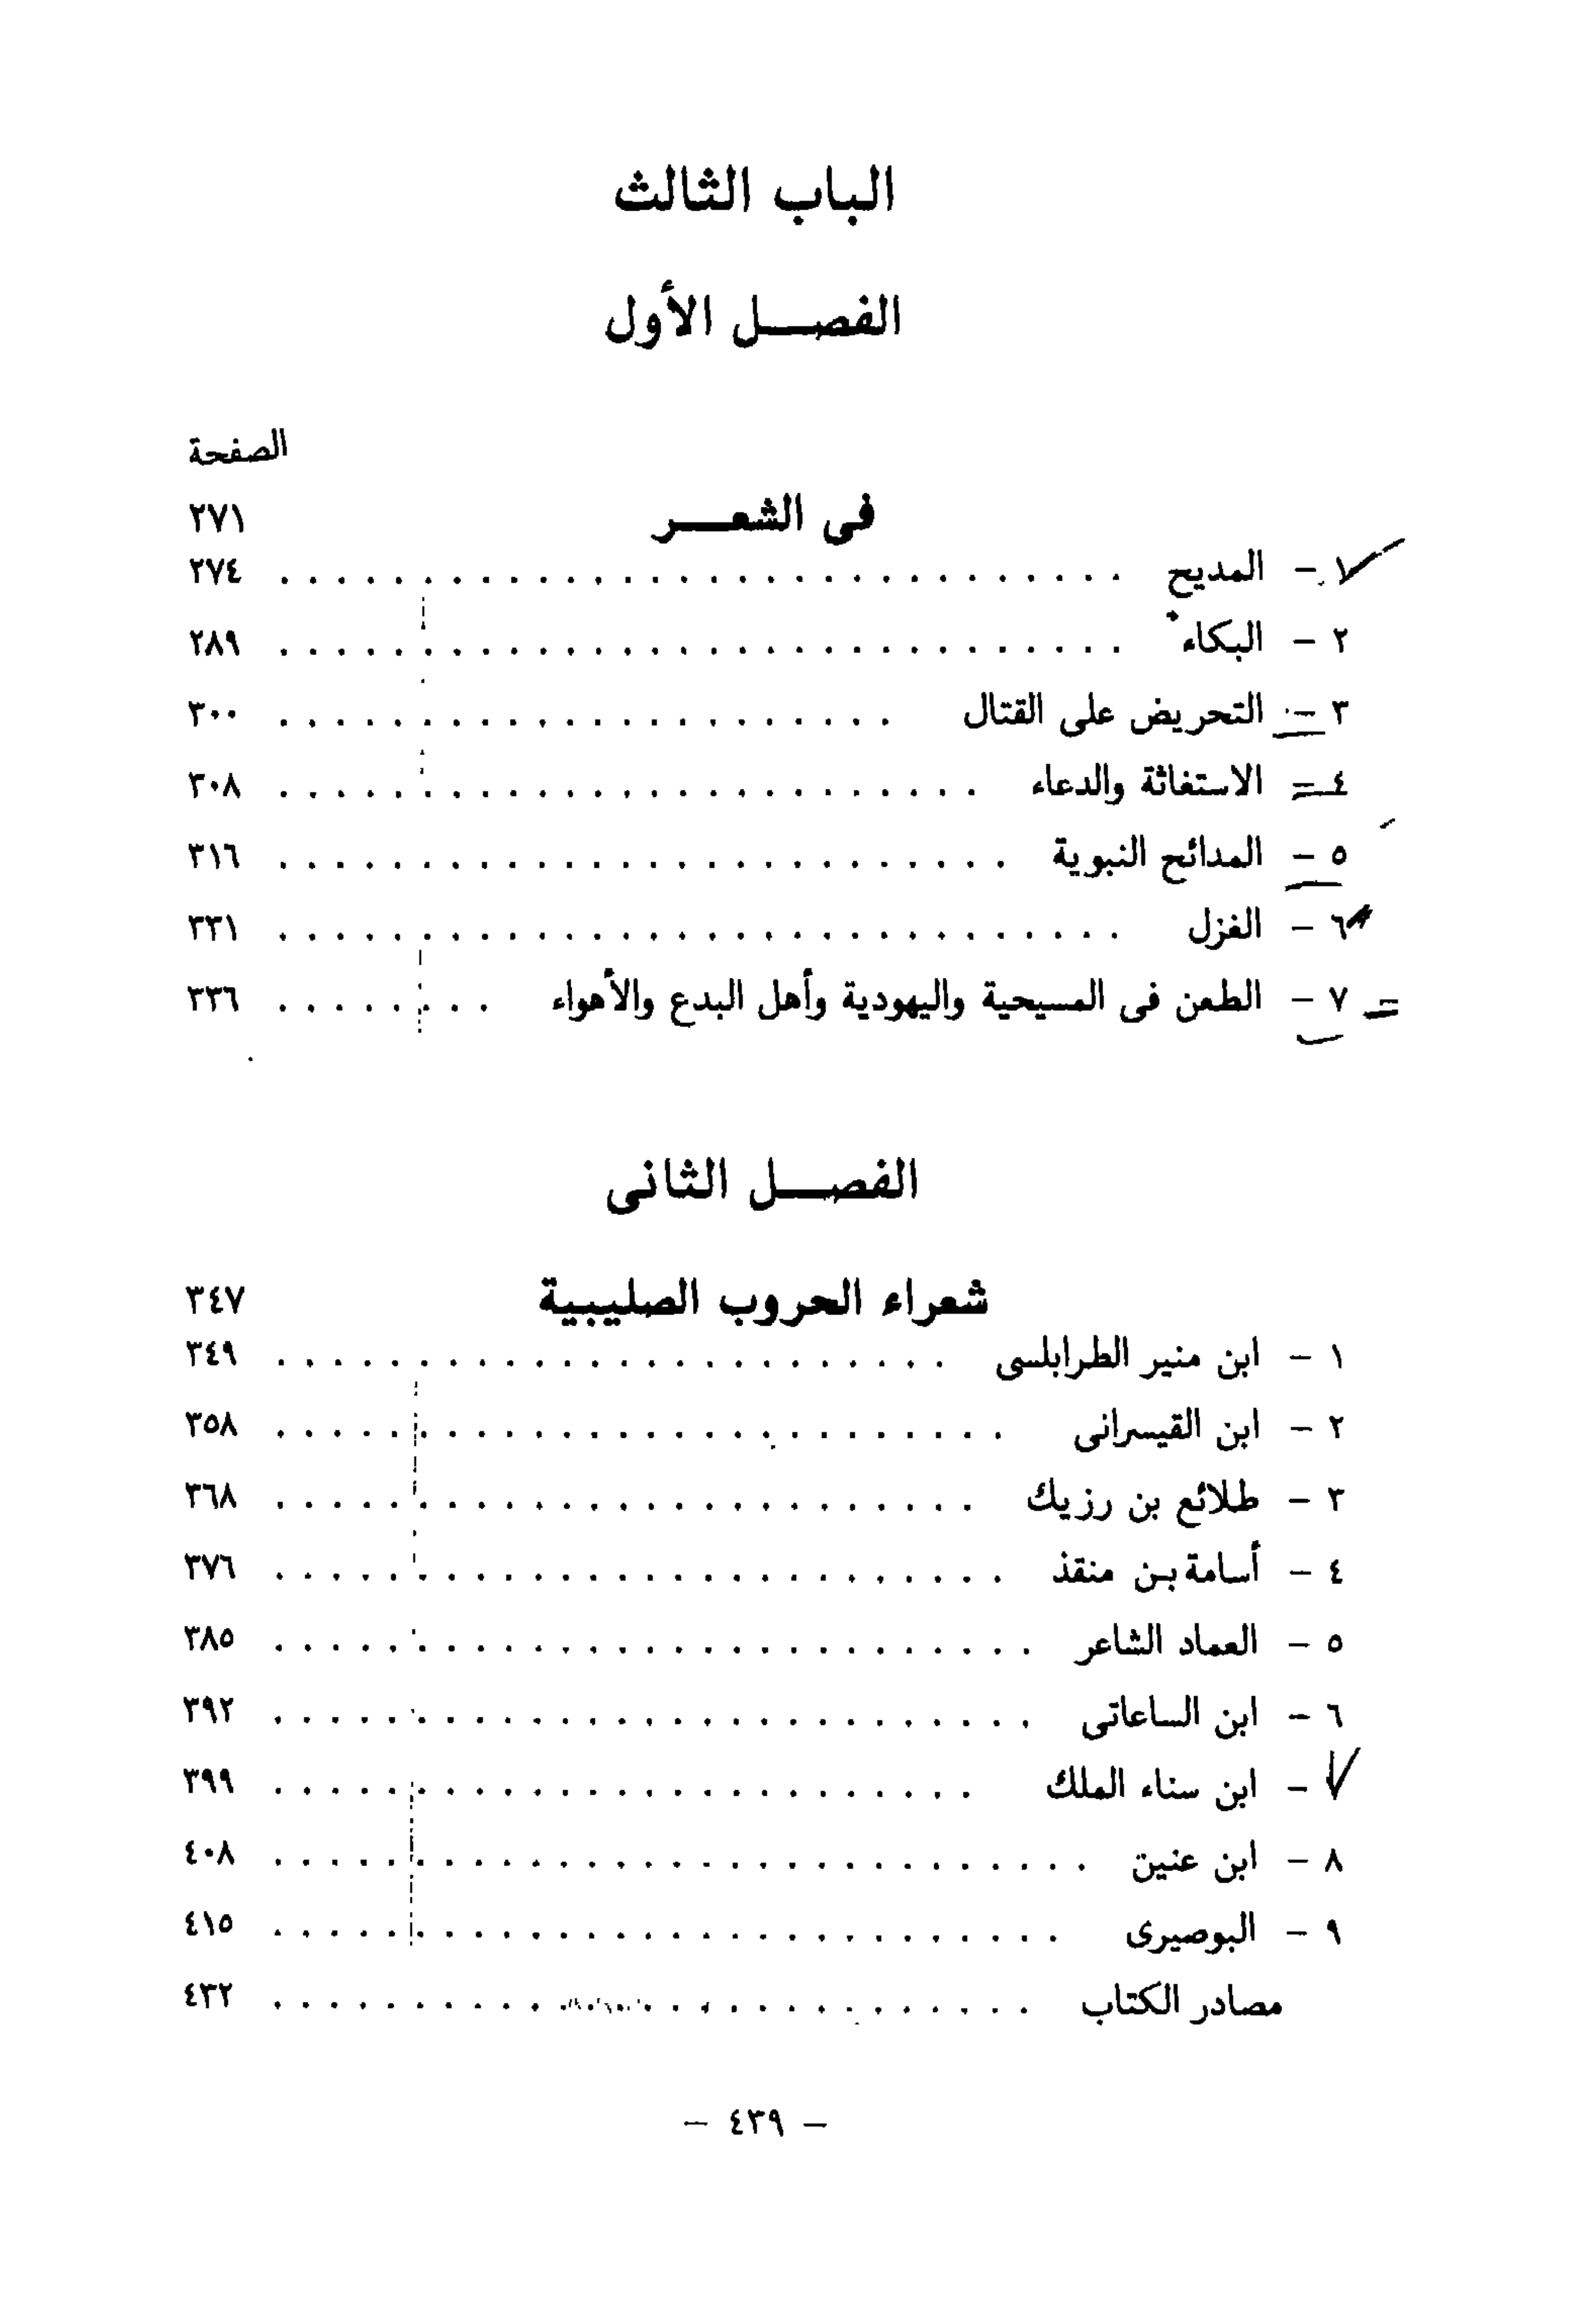 الباب الثالث
الفصل الأول
الصفحة
فى الشعر ٢٧١
١ - المديح . . . . . . . . . . . . . . . . . . . . . . . . . . . . . . ٢٧٤
٢ - البكاء . . . . . . . . . . . . . . . . . . . . . . . . . . . . . . ٢٨٩
٣ - التحريض على القتال . . . . . . . . . . . . . . . . . . . . . . ٣٠٠
٤ - الاستغاثة والدعاء . . . . . . . . . . . . . . . . . . . . . . . . . ٣٠٨
٥ - المدائح النبوية . . . . . . . . . . . . . . . . . . . . . . . . . . ٣١٦
٦ - الغزل . . . . . . . . . . . . . . . . . . . . . . . . . . . . . . ٣٣١
٧ - الطعن فى المسيحية واليهودية وأهل البدع والأهواء . . . . . . . . ٣٣٦
الفصل الثانى
شعراء الحروب الصليبية ٣٤٧
١ - ابن منير الطرابلسى . . . . . . . . . . . . . . . . . . . . . . . . ٣٤٩
٢ - ابن القيسرانى . . . . . . . . . . . . . . . . . . . . . . . . . . ٣٥٨
٣ - طلائع بن رزيك . . . . . . . . . . . . . . . . . . . . . . . . . ٣٦٨
٤ - أسامة بن منقذ . . . . . . . . . . . . . . . . . . . . . . . . . . ٣٧٦
٥ - العماد الشاعر . . . . . . . . . . . . . . . . . . . . . . . . . . . ٣٨٥
٦ - ابن الساعاتى . . . . . . . . . . . . . . . . . . . . . . . . . . . ٣٩٢
٧ - ابن سناء الملك . . . . . . . . . . . . . . . . . . . . . . . . . ٣٩٩
٨ - ابن عنين . . . . . . . . . . . . . . . . . . . . . . . . . . . . . ٤٠٨
٩ - البوصيرى . . . . . . . . . . . . . . . . . . . . . . . . . . . . ٤١٥
مصادر الكتاب . . . . . . . . . . . . . . . . . . . . . . . . . . . ٤٣٢
- ٤٣٩ -